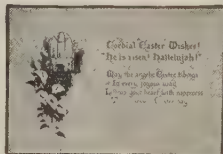 Cordial Easter Wishes!
He is risen! Hallelujah!
May the angelic Easter tidings
In every joyous way
your heart with happiness